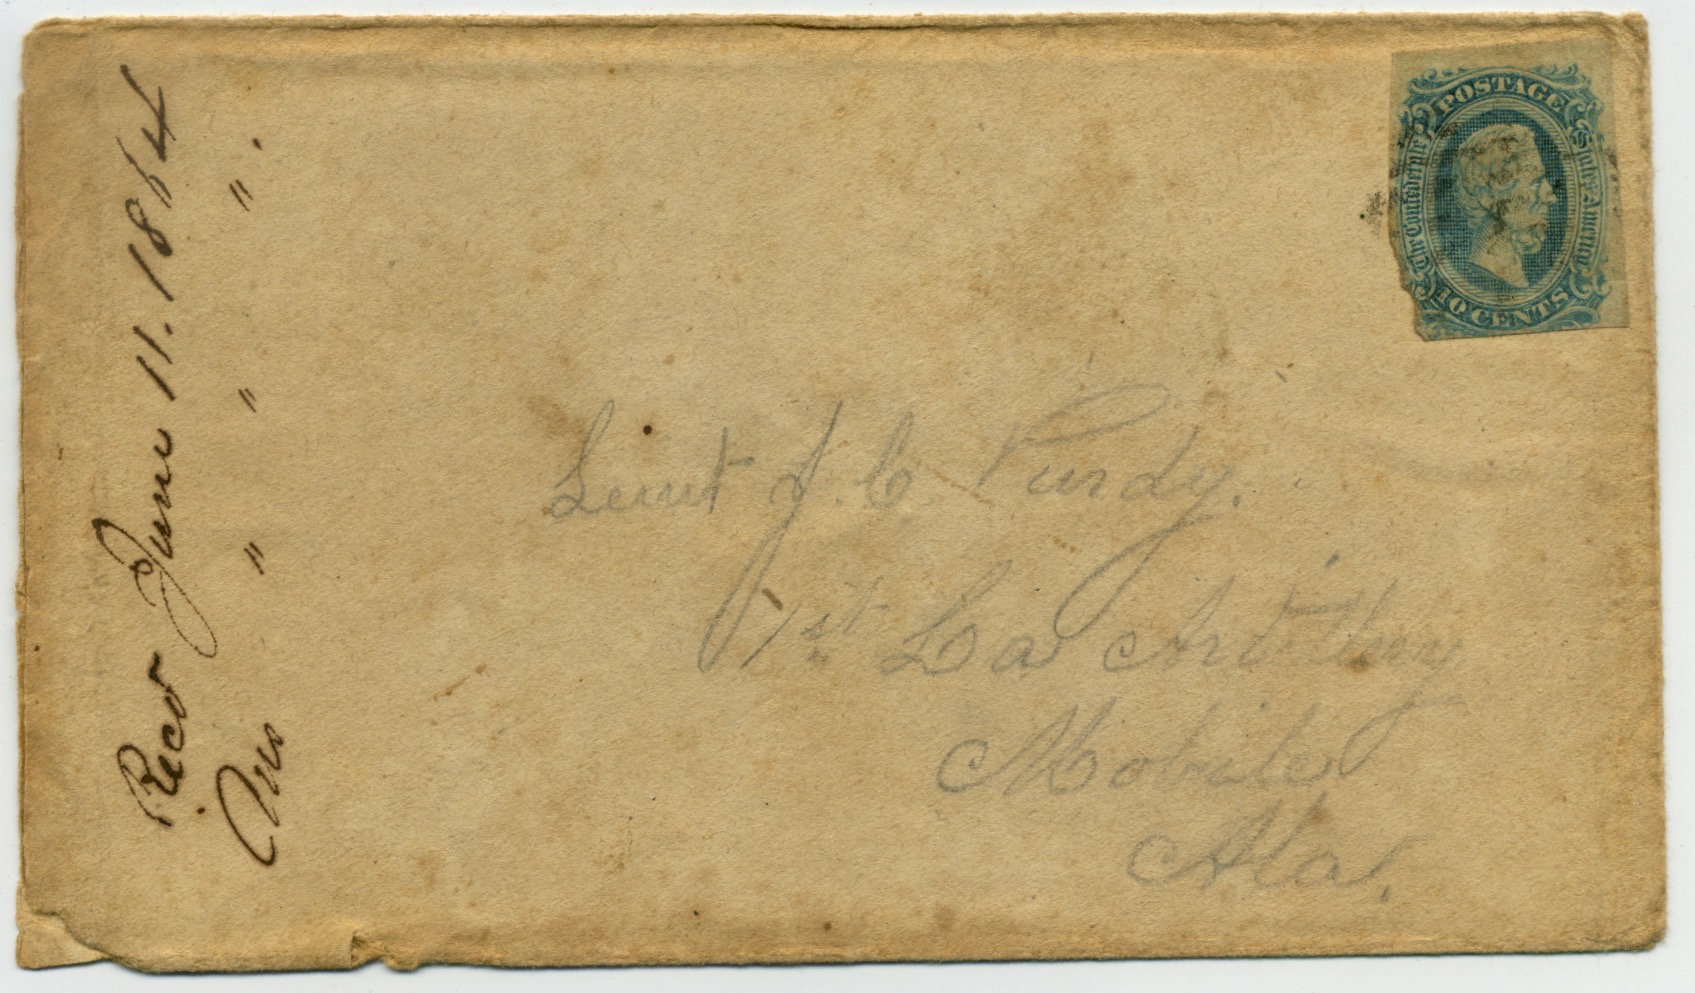 POSTAGE
The Confederate States of America
10 CENTS
Lieut J. C. Purdy.
1st La Artillery
Mobile
Ala.
Recd June 11. 1864
Ans " " ".